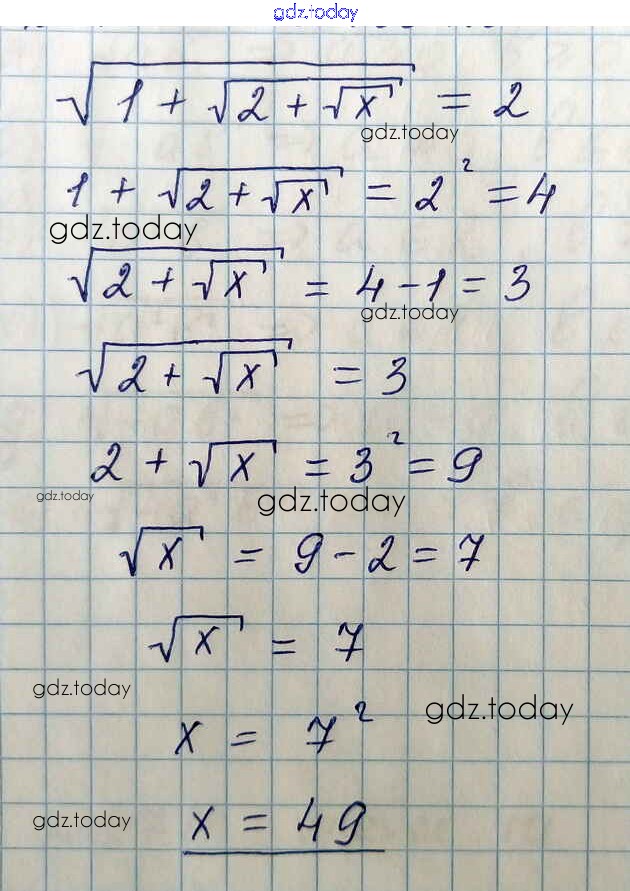 gdz.today
√(1 + √(2 + √x)) = 2
gdz.today
1 + √(2 + √x) = 2² = 4
gdz.today
√(2 + √x) = 4 - 1 = 3
gdz.today
√(2 + √x) = 3
2 + √x = 3² = 9
gdz.today gdz.today
√x = 9 - 2 = 7
√x = 7
gdz.today
x = 7²
gdz.today
x = 49
gdz.today